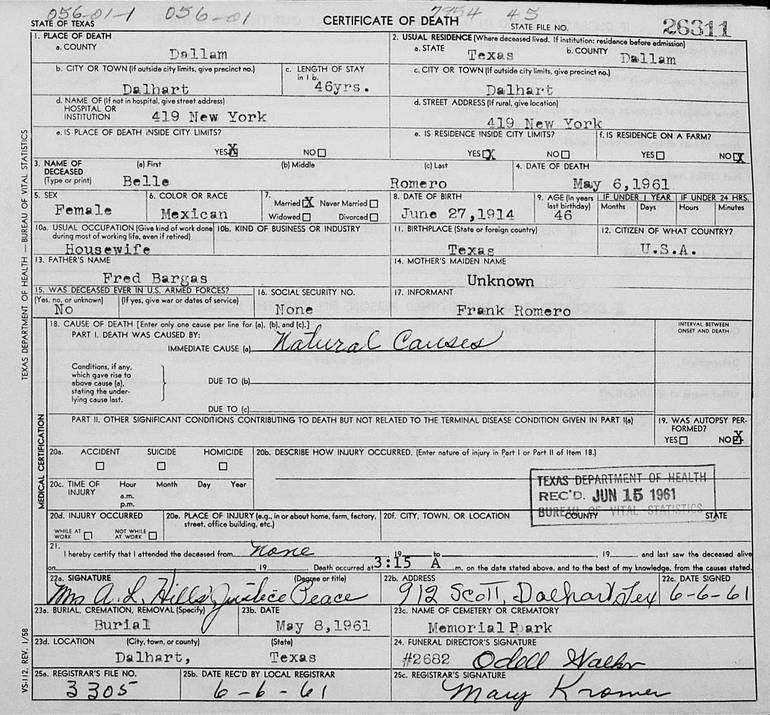 056-01-1 056-01 7954 45
STATE OF TEXAS CERTIFICATE OF DEATH STATE FILE NO. 26311
1. PLACE OF DEATH 2. USUAL RESIDENCE (Where deceased lived. If institution: residence before admission)
a. COUNTY Dallam a. STATE Texas b. COUNTY Dallam
b. CITY OR TOWN (If outside city limits, give precinct no.) c. LENGTH OF STAY in 1 b. c. CITY OR TOWN (If outside city limits, give precinct no.)
Dalhart 46yrs. Dalhart
d. NAME OF (If not in hospital, give street address) d. STREET ADDRESS (If rural, give location)
HOSPITAL OR
INSTITUTION 419 New York 419 New York
e. IS PLACE OF DEATH INSIDE CITY LIMITS? e. IS RESIDENCE INSIDE CITY LIMITS? f. IS RESIDENCE ON A FARM?
YES X NO YES X NO YES NO X
3. NAME OF DECEASED (a) First (b) Middle (c) Last 4. DATE OF DEATH
(Type or print) Belle Romero May 6,1961
5. SEX 6. COLOR OR RACE 7. Married X Never Married 8. DATE OF BIRTH 9. AGE (In years last birthday) IF UNDER 1 YEAR IF UNDER 24 HRS.
Months Days Hours Minutes
Female Mexican Widowed Divorced June 27,1914 46
10a. USUAL OCCUPATION (Give kind of work done during most of working life, even if retired) 10b. KIND OF BUSINESS OR INDUSTRY 11. BIRTHPLACE (State or foreign country) 12. CITIZEN OF WHAT COUNTRY?
Housewife Texas U.S.A.
13. FATHER'S NAME 14. MOTHER'S MAIDEN NAME
Fred Bargas Unknown
15. WAS DECEASED EVER IN U.S. ARMED FORCES? 16. SOCIAL SECURITY NO. 17. INFORMANT
(Yes, no, or unknown) (If yes, give war or dates of service)
No None Frank Romero
18. CAUSE OF DEATH [Enter only one cause per line for (a), (b), and (c).] INTERVAL BETWEEN ONSET AND DEATH
PART I. DEATH WAS CAUSED BY:
IMMEDIATE CAUSE (a) Natural Causes
Conditions, if any, which gave rise to above cause (a), stating the underlying cause last.
DUE TO (b)
DUE TO (c)
PART II. OTHER SIGNIFICANT CONDITIONS CONTRIBUTING TO DEATH BUT NOT RELATED TO THE TERMINAL DISEASE CONDITION GIVEN IN PART I(a) 19. WAS AUTOPSY PERFORMED?
YES NO X
20a. ACCIDENT SUICIDE HOMICIDE 20b. DESCRIBE HOW INJURY OCCURRED. (Enter nature of injury in Part I or Part II of Item 18.)
20c. TIME OF INJURY Hour Month Day Year
a.m.
p.m.
TEXAS DEPARTMENT OF HEALTH
REC'D. JUN 15 1961
BUREAU OF VITAL STATISTICS
20d. INJURY OCCURRED 20e. PLACE OF INJURY (e.g., in or about home, farm, factory, street, office building, etc.) 20f. CITY, TOWN, OR LOCATION COUNTY STATE
WHILE AT WORK NOT WHILE AT WORK
21. I hereby certify that I attended the deceased from None 19 to , 19 and last saw the deceased alive
on 19 Death occurred at 3:15 A m. on the date stated above, and to the best of my knowledge, from the causes stated.
22a. SIGNATURE (Degree or title) 22b. ADDRESS 22c. DATE SIGNED
Mrs A. L. Hills Justice Peace 912 Scott, Dalhart, Tex 6-6-61
23a. BURIAL, CREMATION, REMOVAL (Specify) 23b. DATE 23c. NAME OF CEMETERY OR CREMATORY
Burial May 8,1961 Memorial Park
23d. LOCATION (City, town, or county) (State) 24. FUNERAL DIRECTOR'S SIGNATURE
Dalhart, Texas #2682 Odell
25a. REGISTRAR'S FILE NO. 25b. DATE REC'D BY LOCAL REGISTRAR 25c. REGISTRAR'S SIGNATURE
3305 6-6-61 Mary Kromer
TEXAS DEPARTMENT OF HEALTH — BUREAU OF VITAL STATISTICS
MEDICAL CERTIFICATION
VS-112, REV. 1/58